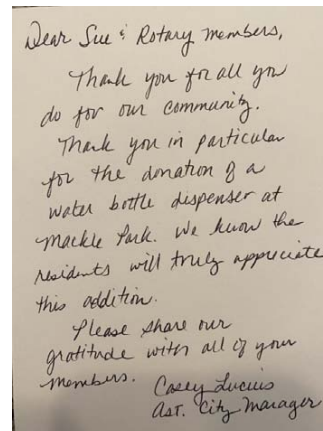 Dear Sue & Rotary members,
Thank you for all you
do for our community.
Thank you in particular
for the donation of a
water bottle dispenser at
Mackle Park. We know the
residents will truly appreciate
this addition.
Please share our
gratitude with all of your
members.
Casey Lucius
Ast. City Manager